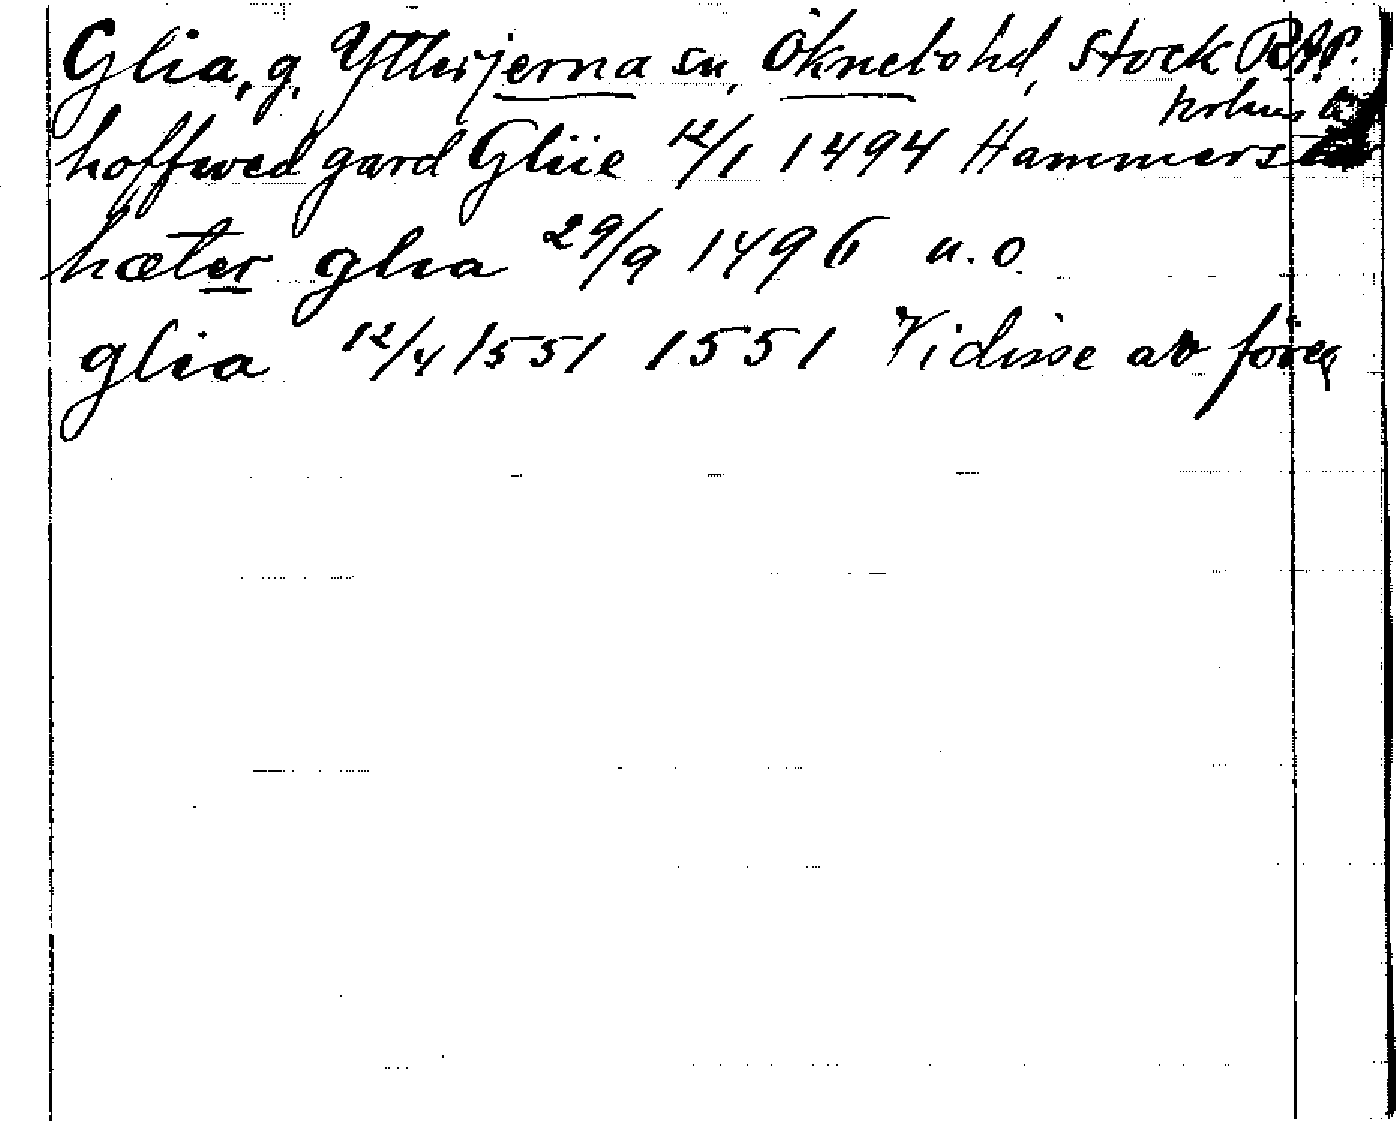 Glia, g. Ytterjerna sn, Öknebo hd, Stock RAP.
hoffwed gard Gliie 12/1 1494 Hammers
hæter glia 29/9 1496 u.o.
glia 12/4 1551 1551 Vidisse av föreg